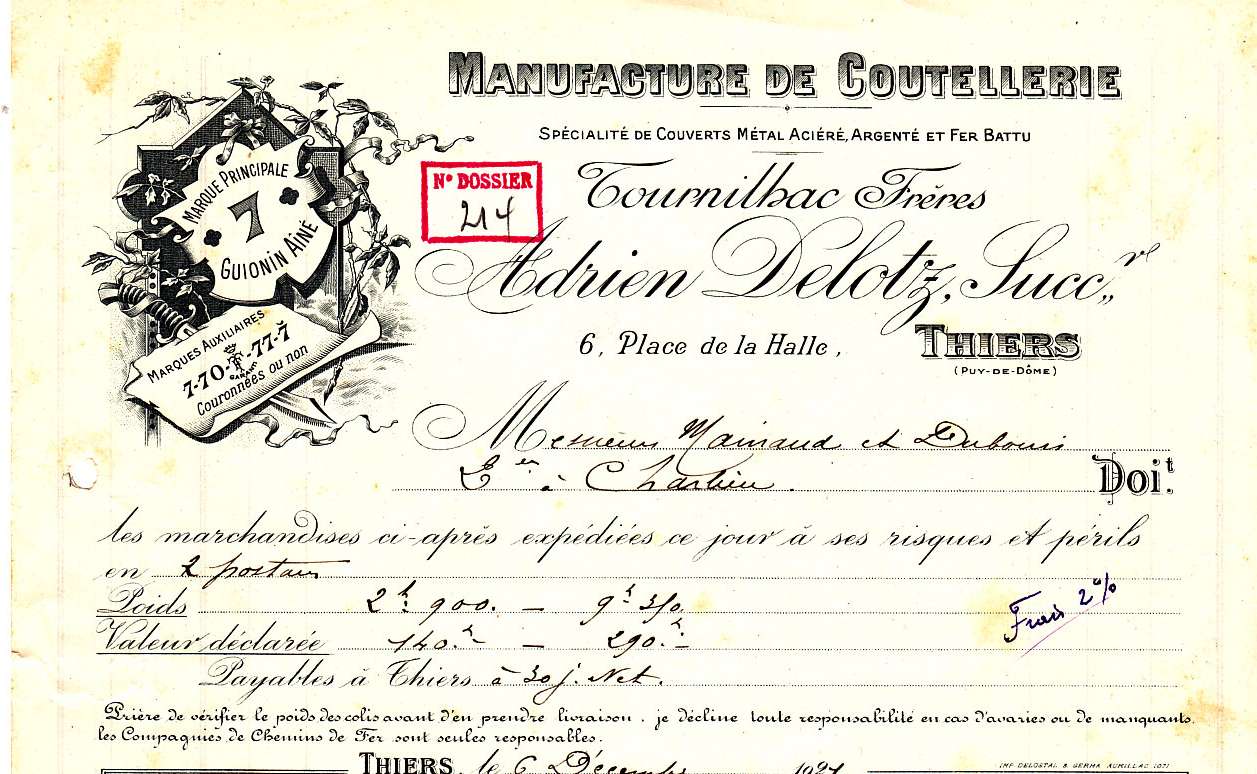 MANUFACTURE DE COUTELLERIE
SPÉCIALITÉ DE COUVERTS MÉTAL ACIÉRÉ, ARGENTÉ ET FER BATTU
Tournilhac Frères
Adrien Delotz, Succr
6, Place de la Halle, THIERS
(PUY-DE-DÔME)
MARQUE PRINCIPALE
7
GUIONIN AÎNÉ
MARQUES AUXILIAIRES
7-70-T-77-7
GARANTI
Couronnées ou non
No DOSSIER
214
Messieurs Mainaud et Dubouis
à Charlieu. Doit
les marchandises ci-après expédiées ce jour à ses risques et périls
en 2 postaux
Poids 2k. 900. — 9k 350.
Valeur déclarée 140.- — 290.-
Frais 2%
Payables à Thiers à 30 j. Net.
Prière de vérifier le poids des colis avant d'en prendre livraison. je décline toute responsabilité en cas d'avaries ou de manquants.
les Compagnies de Chemins de Fer sont seules responsables.
IMP. DELOSTAL & GERMA AURILLAC
THIERS, le 6 Décembre